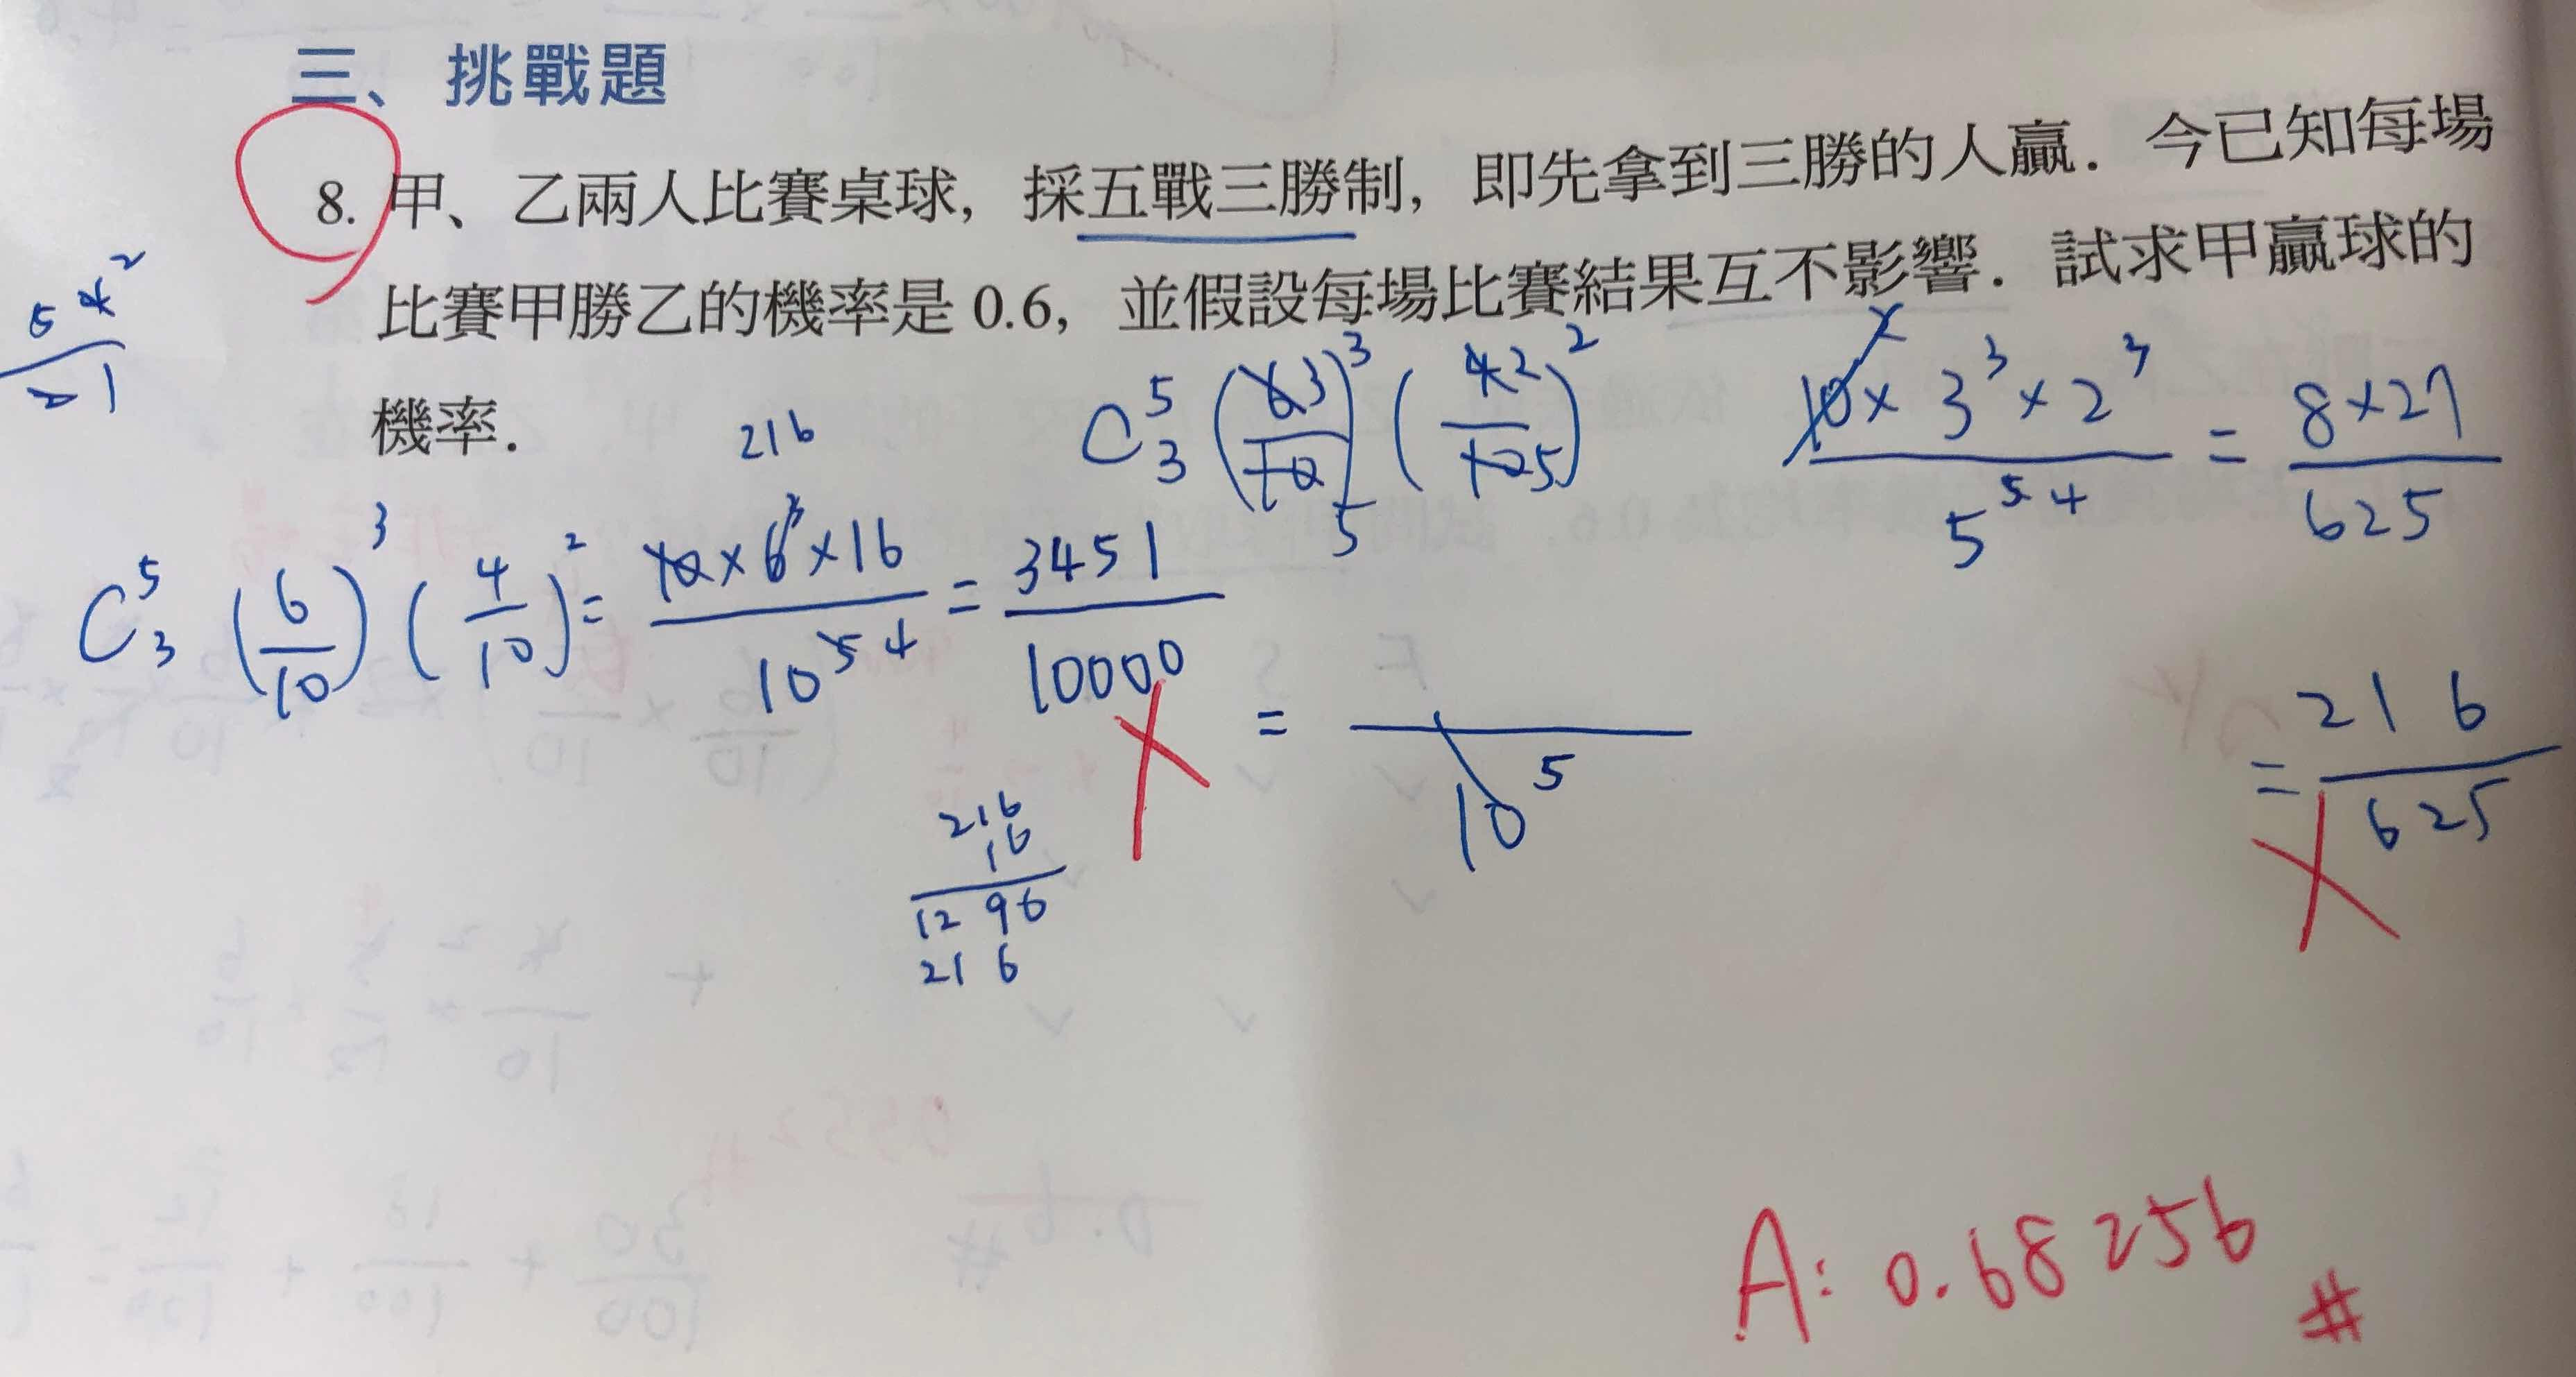 三、挑戰題
8. 甲、乙兩人比賽桌球，採五戰三勝制，即先拿到三勝的人贏．今已知每場
比賽甲勝乙的機率是 0.6，並假設每場比賽結果互不影響．試求甲贏球的
機率．
5 4 2
2 1
216
C⁵₃ (6 3 / 10 5)³ (4 2 / 10 5)²
10 × 3³ × 2³ / 5⁵ ⁴ = 8×27 / 625
C⁵₃ (6/10)³ (4/10)² = 10×6³×16 / 10⁵ ⁴ = 3451 / 10000
= / 10⁵
= 216 / 625
216
16
1296
216
A: 0.68256 #